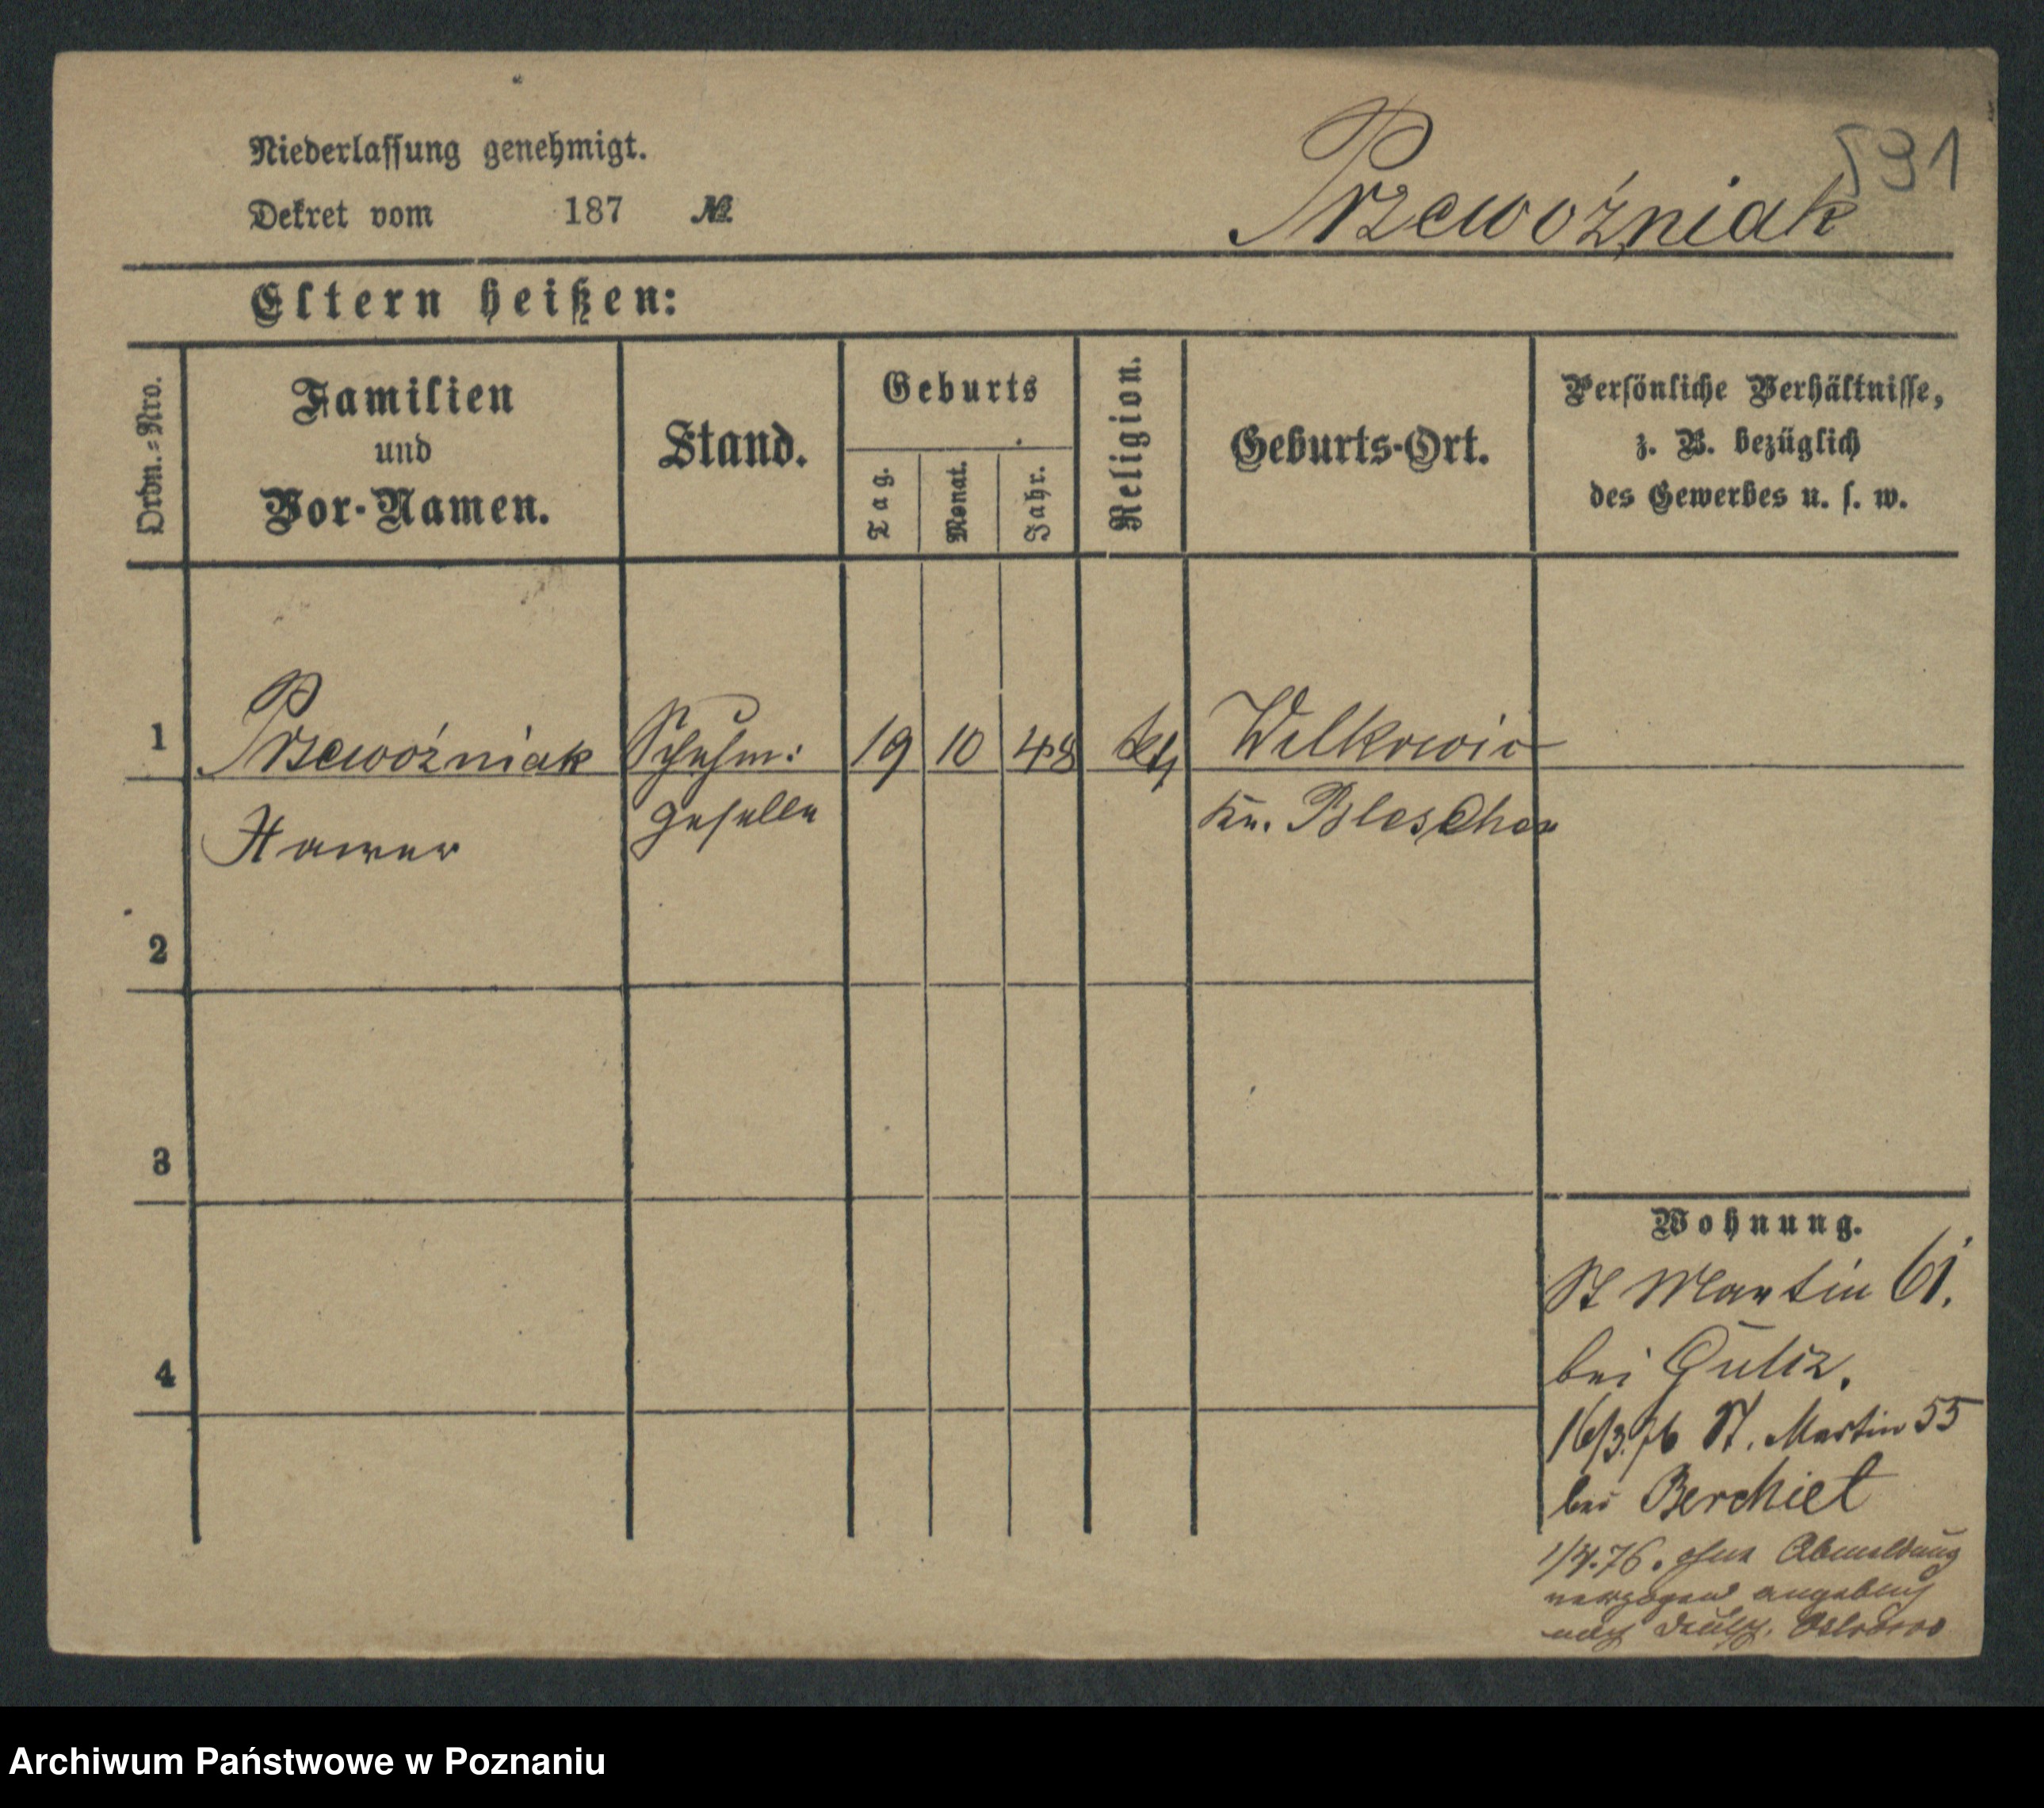 591
Niederlassung genehmigt.
Dekret vom 187 №
Przewoźniak
Eltern heißen:
Ordn.=Nro.
Familien
und
Vor-Namen.
Stand.
Geburts
Tag.
Monat.
Jahr.
Religion.
Geburts-Ort.
Persönliche Verhältnisse,
z. B. bezüglich
des Gewerbes u. s. w.
1 Przewoźniak Schuhm: 19 10 48 kth Wilkowic
geselle Kr. Pleschen
2
3
4
Wohnung.
St Martin 61.
bei
16/3.76 St. Martin 55
bei Berchiet
1/4.76. ohne Abmeldung
verzogen angeblich
nach Deutsch.
Archiwum Państwowe w Poznaniu